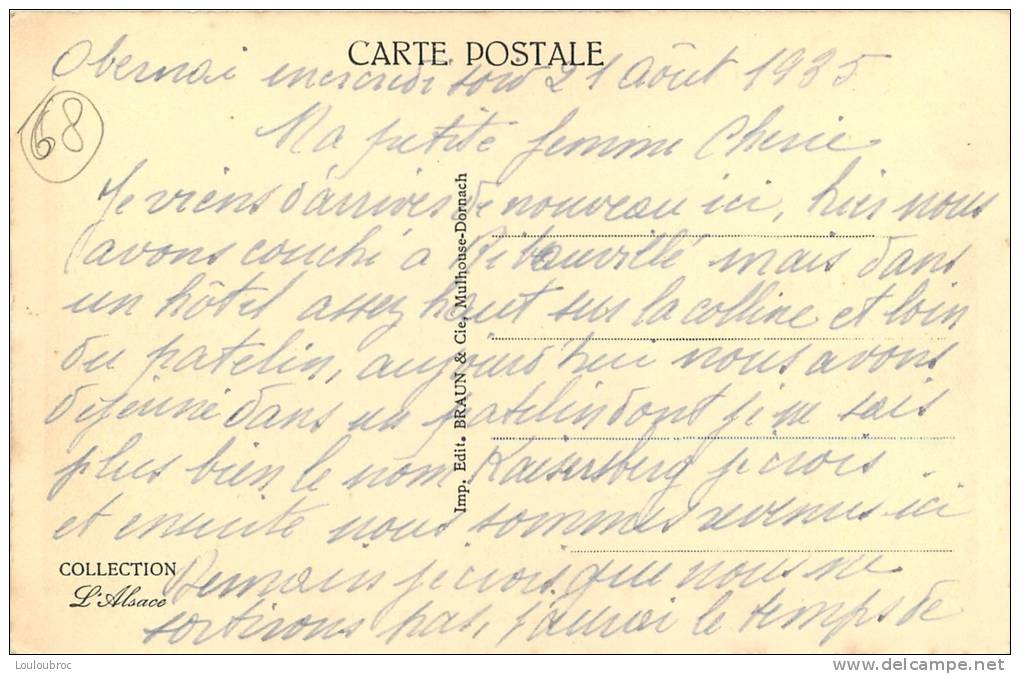 CARTE POSTALE
Obernai mercredi soir 21 Août 1935
68
Ma petite femme Cherie
Je viens d'arriver de nouveau ici, hier nous
avons couché à Ribeauvillé mais dans
un hôtel assez haut sur la colline et loin
du patelin, aujourd'hui nous avons
dejeuné dans un patelin dont je ne sais
plus bien le nom Kaisersberg je crois
et ensuite nous sommes revenus ici
Demain je crois que nous ne
sortirons pas, j'aurai le temps de
Imp. Edit. BRAUN & Cie, Mulhouse-Dornach
COLLECTION
L'Alsace
Louloubroc
www.delcampe.net